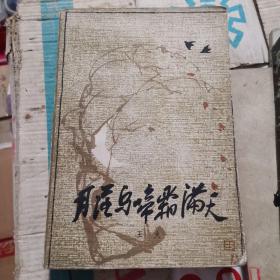 月落乌啼霜满天